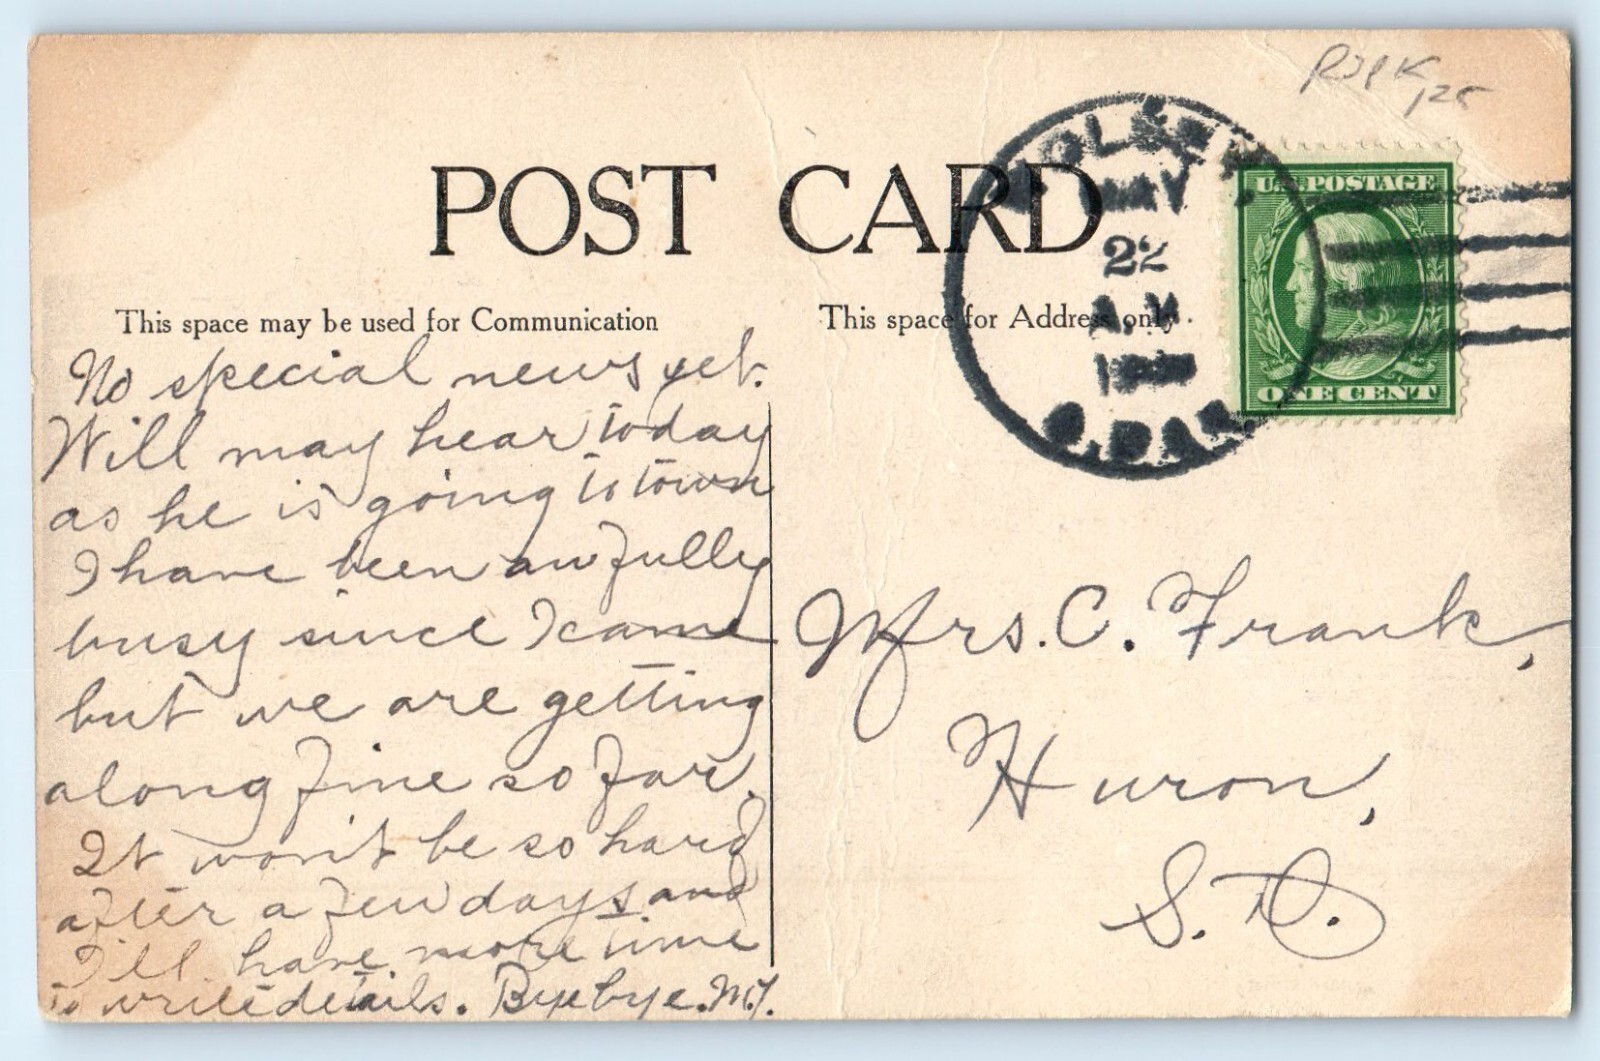 POST CARD
This space may be used for Communication
This space for Address only.
MAY
22
A.M.
S.DAK.
U.S. POSTAGE
ONE CENT
No special news yet.
Will may hear today
as he is going to town
I have been awfully
busy since I came
but we are getting
along fine so far.
It won't be so hard
after a few days and
I'll have more time
to write details. Bye bye. M.Y.
Mrs. C. Frank,
Huron,
S. D.